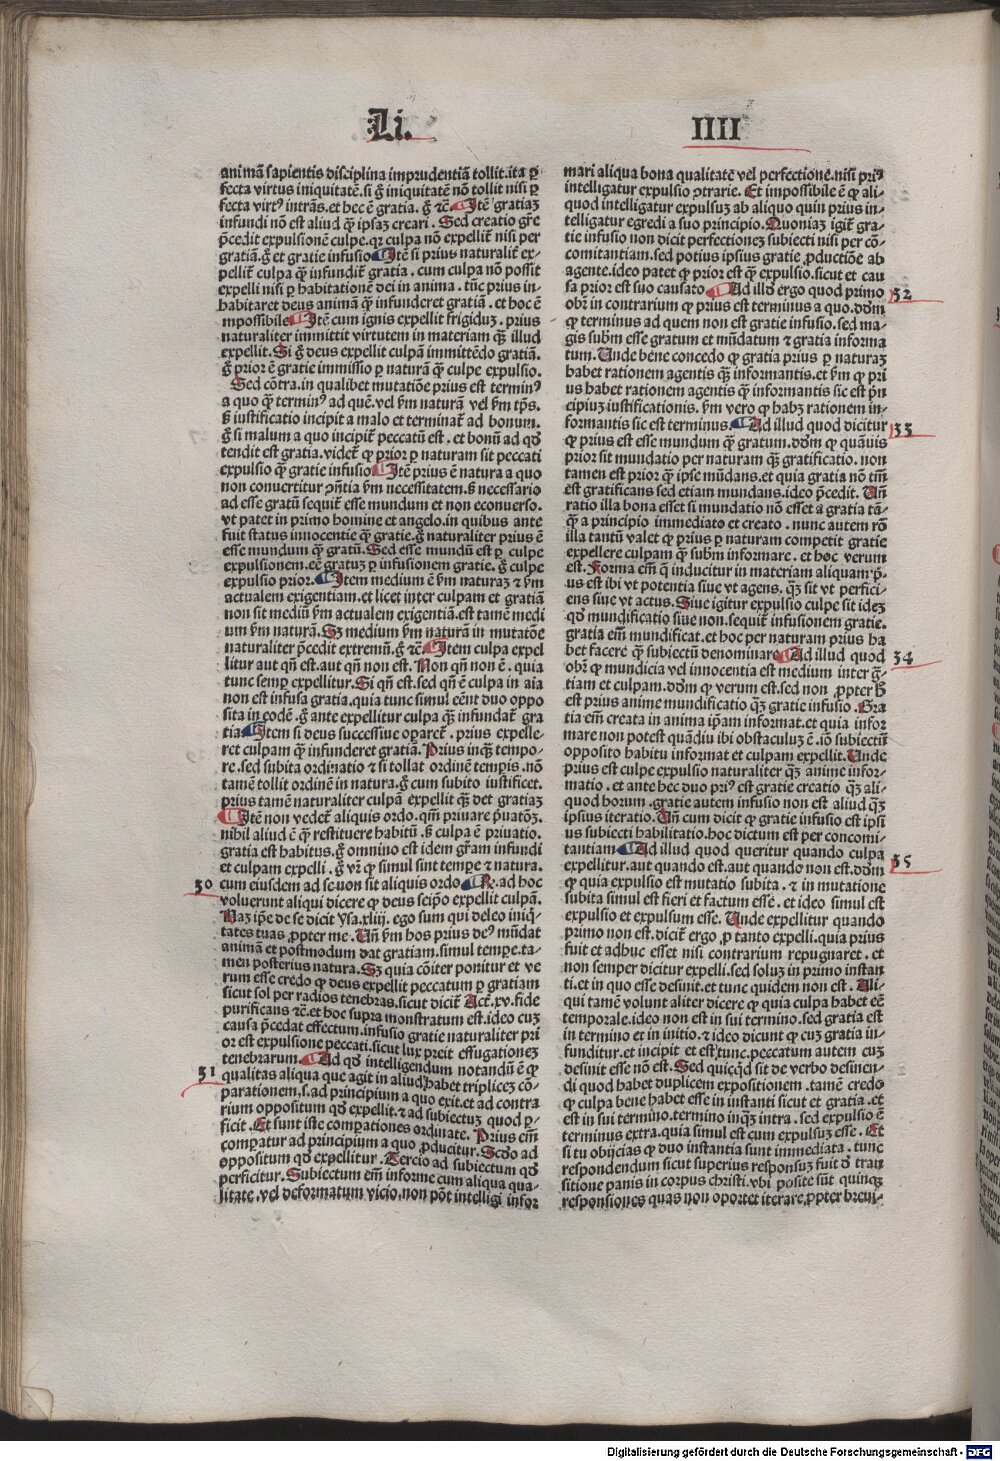 Li. IIII
animā sapientis disciplina imprudentiā tollit. ita ꝑ
fecta virtus iniquitatē. si ḡ iniquitatē nō tollit nisi ꝑ
fecta virtꝰ intrās. et hec ē gratia. ḡ ⁊c̄. Itē gratiaꝫ
infundi nō est aliud qꝫ ipsaꝫ creari. Sed creatio gr̄e
p̄cedit expulsionē culpe. qꝛ culpa nō expellit̄ nisi per
gratiā. ḡ et gratie infusio Itē si prius naturalit̄ ex-
pellit̄ culpa qꝫ infundit̄ gratia. cum culpa nō possit
expelli nisi ꝑ habitationē dei in anima. tūc prius in-
habitaret deus animā qꝫ infunderet gratiā. et hoc ē
impossibile Itē cum ignis expellit frigiduꝫ. prius
naturaliter immittit virtutem in materiam qꝫ illud
expellit. Si ḡ deus expellit culpā immittēdo gratiā.
ḡ prior ē gratie immissio ꝑ naturā qꝫ culpe expulsio.
Sed cōtra. in qualibet mutatiōe prius est terminꝰ
a quo qꝫ terminꝰ ad quē. vel ẜm naturā vel ẜm tp̄s.
ẜ iustificatio incipit a malo et terminat̄ ad bonum.
ḡ si malum a quo incipit̄ peccatū est. et bonū ad qd̄
tendit est gratia. videt̄ ꝙ prior ꝑ naturam sit peccati
expulsio qꝫ gratie infusio Itē prius ē natura a quo
non conuertitur ꝯn̄tia ẜm necessitatem. ẜ necessario
ad esse gratū sequit̄ esse mundum et non econuerso.
vt patet in primo homine et angelo. in quibus ante
fuit status innocentie qꝫ gratie. ḡ naturaliter prius ē
esse mundum qꝫ gratū. Sed esse mundū est ꝑ culpe
expulsionem. eē gratuꝫ ꝑ infusionem gratie. ḡ culpe
expulsio prior. Item medium ē ẜm naturaꝫ ⁊ ẜm
actualem exigentiam. et licet inter culpam et gratiā
non sit mediū ẜm actualem exigentiā. est tamē medi
um ẜm naturā. Sꝫ medium ẜm naturā in mutatōe
naturaliter p̄cedit extremū. ḡ ⁊c̄. Item culpa expel
litur aut qn̄ est. aut qn̄ non est. Non qn̄ non ē. quia
tunc semꝑ expellitur. Si qn̄ est. sed qn̄ ē culpa in aīa
non est infusa gratia. quia tunc simul eēnt duo oppo
sita in eodē. ḡ ante expellitur culpa qꝫ infundat̄ gra
tia Item si deus successiue oꝑaret̄. prius expelle-
ret culpam qꝫ infunderet gratiā. Prius inqꝫ tempo-
re. sed subita ordinatio ⁊ si tollat ordinē temꝑis. nō
tamē tollit ordinē in natura. ḡ cum subito iustificet.
prius tamē naturaliter culpā expellit qꝫ det gratiaꝫ
Itē non vedet̄ aliquis ordo. qm̄ priuare p̄uatōꝫ.
nihil aliud ē qꝫ restituere habitū. ẜ culpa ē priuatio.
gratia est habitus. ḡ omnino est idem gr̄am infundi
et culpam expelli. ḡ vr̄ ꝙ simul sint tempe ⁊ natura.
30 cum eiusdem ad se non sit aliquis ordo Rꝰ. ad hoc
voluerunt aliqui dicere ꝙ deus seip̄o expellit culpā.
Naꝫ ip̄e de se dicit ysa. xliij. ego sum qui deleo iniq̄-
tates tuas ꝓpter me. Un̄ ẜm hos prius deꝰ mūdat
animā et postmodum dat gratiam. simul tempe. ta-
men posterius natura. Sꝫ quia cōiter ponitur et ve
rum esse credo ꝙ deus expellit peccatum ꝑ gratiam
sicut sol per radios tenebras. sicut dicit̄ Act̄. xv. fide
purificans ⁊c̄. et hoc supra monstratum est. ideo cuꝫ
causa p̄cedat effectum. infusio gratie naturaliter pri
or est expulsione peccati. sicut lux preit effugationeꝫ
tenebrarum. Ad qd̄ intelligendum notandū ē ꝙ
31 qualitas aliqua que agit in aliud habet tripliceꝫ cō-
parationem. s. ad principium a quo exit. et ad contra
rium oppositum qd̄ expellit. ⁊ ad subiectuꝫ quod ꝑ-
ficit. Et sunt iste comꝑationes ordinate. Prius em̄
comꝑatur ad principium a quo ꝓducitur. Scd̄o ad
oppositum qd̄ expellitur. Tercio ad subiectum qd̄
perficitur. Subiectum em̄ informe cum aliqua qua-
litate. vel deformatum vicio. non pōt intelligi infor
mari aliqua bona qualitate vel perfectione. nisi priꝰ
intelligatur expulsio ꝯtrarie. Et impossibile ē ꝙ ali-
quod intelligatur expulsuꝫ ab aliquo quin prius in-
telligatur egredi a suo principio. Quoniaꝫ igit̄ gra-
tie infusio non dicit perfectioneꝫ subiecti nisi per cō-
comitantiam. sed potius ipsius gratie ꝓductiōe ab
agente. ideo patet ꝙ prior est qꝫ expulsio. sicut et cau
sa prior est suo causato Ad illd̄ ergo quod primo 32
obr̄ in contrarium ꝙ prius est terminus a quo. dd̄m
ꝙ terminus ad quem non est gratie infusio. sed ma-
gis subm̄ esse gratum et mūdatum ⁊ gratia informa
tum. Unde bene concedo ꝙ gratia prius ꝑ naturaꝫ
habet rationem agentis qꝫ informantis. et ẜm ꝙ pri
us habet rationem agentis qꝫ informantis sic est p̄n
cipiuꝫ iustificationis. ẜm vero ꝙ habꝫ rationem in-
formantis sic est terminus. Ad illud quod dicitur 33
ꝙ prius est esse mundum qꝫ gratum. dd̄m ꝙ quāuis
prior sit mundatio per naturam qꝫ gratificatio. non
tamen est prior qꝫ ipse mūdans. et quia gratia nō tm̄
est gratificans sed etiam mundans. ideo p̄cedit. Un̄
ratio illa bona esset si mundatio nō esset a gratia tā-
qꝫ a principio immediato et creato. nunc autem rō
illa tantū valet ꝙ prius ꝑ naturam competit gratie
expellere culpam qꝫ subm̄ informare. et hoc verum
est. Forma em̄ q̄ inducitur in materiam aliquam p̄-
us est ibi vt potentia siue vt agens. qꝫ sit vt perfici-
ens siue vt actus. Siue igitur expulsio culpe sit ideꝫ
qd̄ mundificatio siue non. sequit̄ infusionem gratie.
gratia em̄ mundificat. et hoc per naturam prius ha
bet facere qꝫ subiectū denominare Ad illud quod 34
obr̄ ꝙ mundicia vel innocentia est medium inter ḡ-
tiam et culpam. dd̄m ꝙ verum est. sed non ꝓpter ħ
est prius anime mundificatio qꝫ gratie infusio. Gra
tia em̄ creata in anima ip̄am informat. et quia infor
mare non potest quādiu ibi obstaculuꝫ ē. iō subiectū
opposito habitu informat et culpam expellit. Unde
prius est culpe expulsio naturaliter qꝫ anime infor-
matio. et ante hec duo priꝰ est gratie creatio qꝫ ali-
quod horum. gratie autem infusio non est aliud qꝫ
ipsius iteratio. Un̄ cum dicit ꝙ gratie infusio est ipsi
us subiecti habilitatio. hoc dictum est per concomi-
tantiam Ad illud quod queritur quando culpa 35
expellitur. aut quando est. aut quando non est. dd̄m
ꝙ quia expulsio est mutatio subita. ⁊ in mutatione
subita simul est fieri et factum esse. et ideo simul est
expulsio et expulsum esse. Unde expellitur quando
primo non est. dicit̄ ergo ꝓ tanto expelli. quia prius
fuit et adhuc esset nisi contrarium repugnaret. et
non semper dicitur expelli. sed soluꝫ in primo instan
ti. et in quo esse desinit. et tunc quidem non est. Ali-
qui tamē volunt aliter dicere ꝙ quia culpa habet eē
temporale. ideo non est in sui termino. sed gratia est
in termino et in initio. ⁊ ideo dicunt ꝙ cuꝫ gratia in-
funditur. et incipit et est tunc. peccatum autem cuꝫ
desinit esse nō est. Sed quicqd̄ sit de verbo desinen-
di quod habet duplicem expositionem. tamē credo
ꝙ culpa bene habet esse in instanti sicut et gratia. et
est in sui termino. termino inqꝫ intra. sed expulsio ē
terminus extra. quia simul est cum expulsuꝫ esse. Et
si tu obijcias ꝙ duo instantia sunt immediata. tunc
respondendum sicut superius responsuꝫ fuit ď tran
sitione panis in corpus christi. vbi posite sūt quinqꝫ
responsiones quas non oportet iterare. ꝓpter breui-
Digitalisierung gefördert durch die Deutsche Forschungsgemeinschaft - DFG